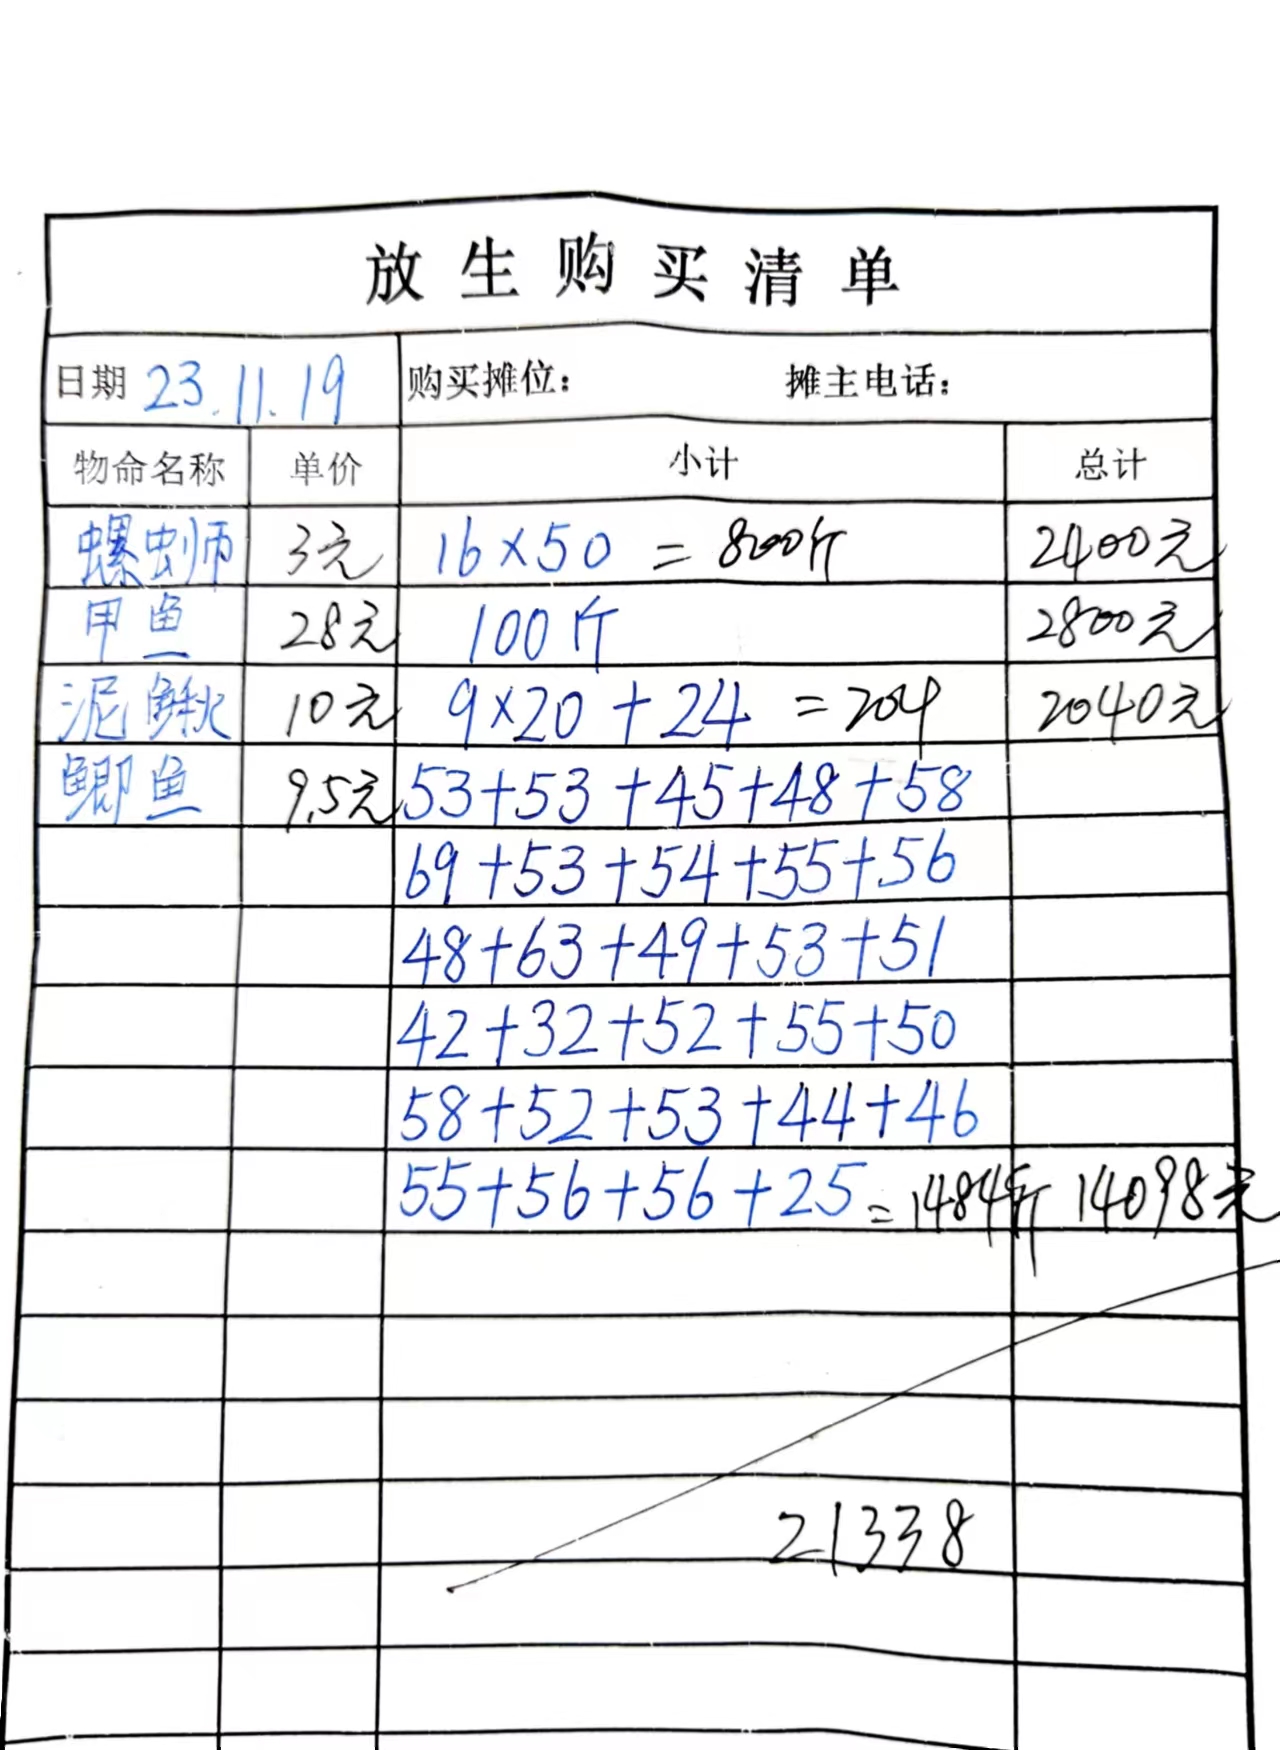 放生购买清单
日期 23.11.19 购买摊位: 摊主电话:
物命名称 单价 小计 总计
螺蛳 3元 16×50 = 800斤 2400元
甲鱼 28元 100斤 2800元
泥鳅 10元 9×20+24 = 204 2040元
鲫鱼 9.5元 53+53+45+48+58
69+53+54+55+56
48+63+49+53+51
42+32+52+55+50
58+52+53+44+46
55+56+56+25 = 1484斤 14098元
21338